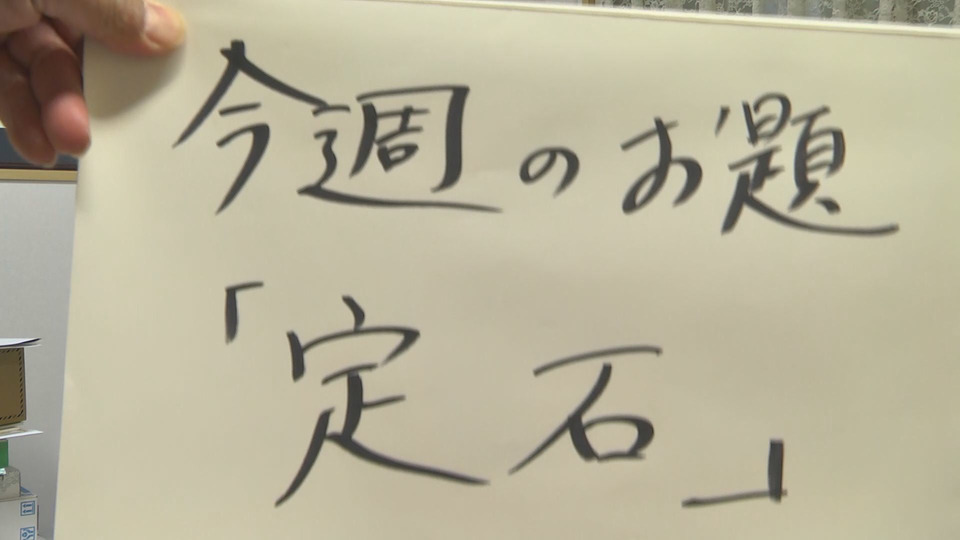 今週のお題
「定石」